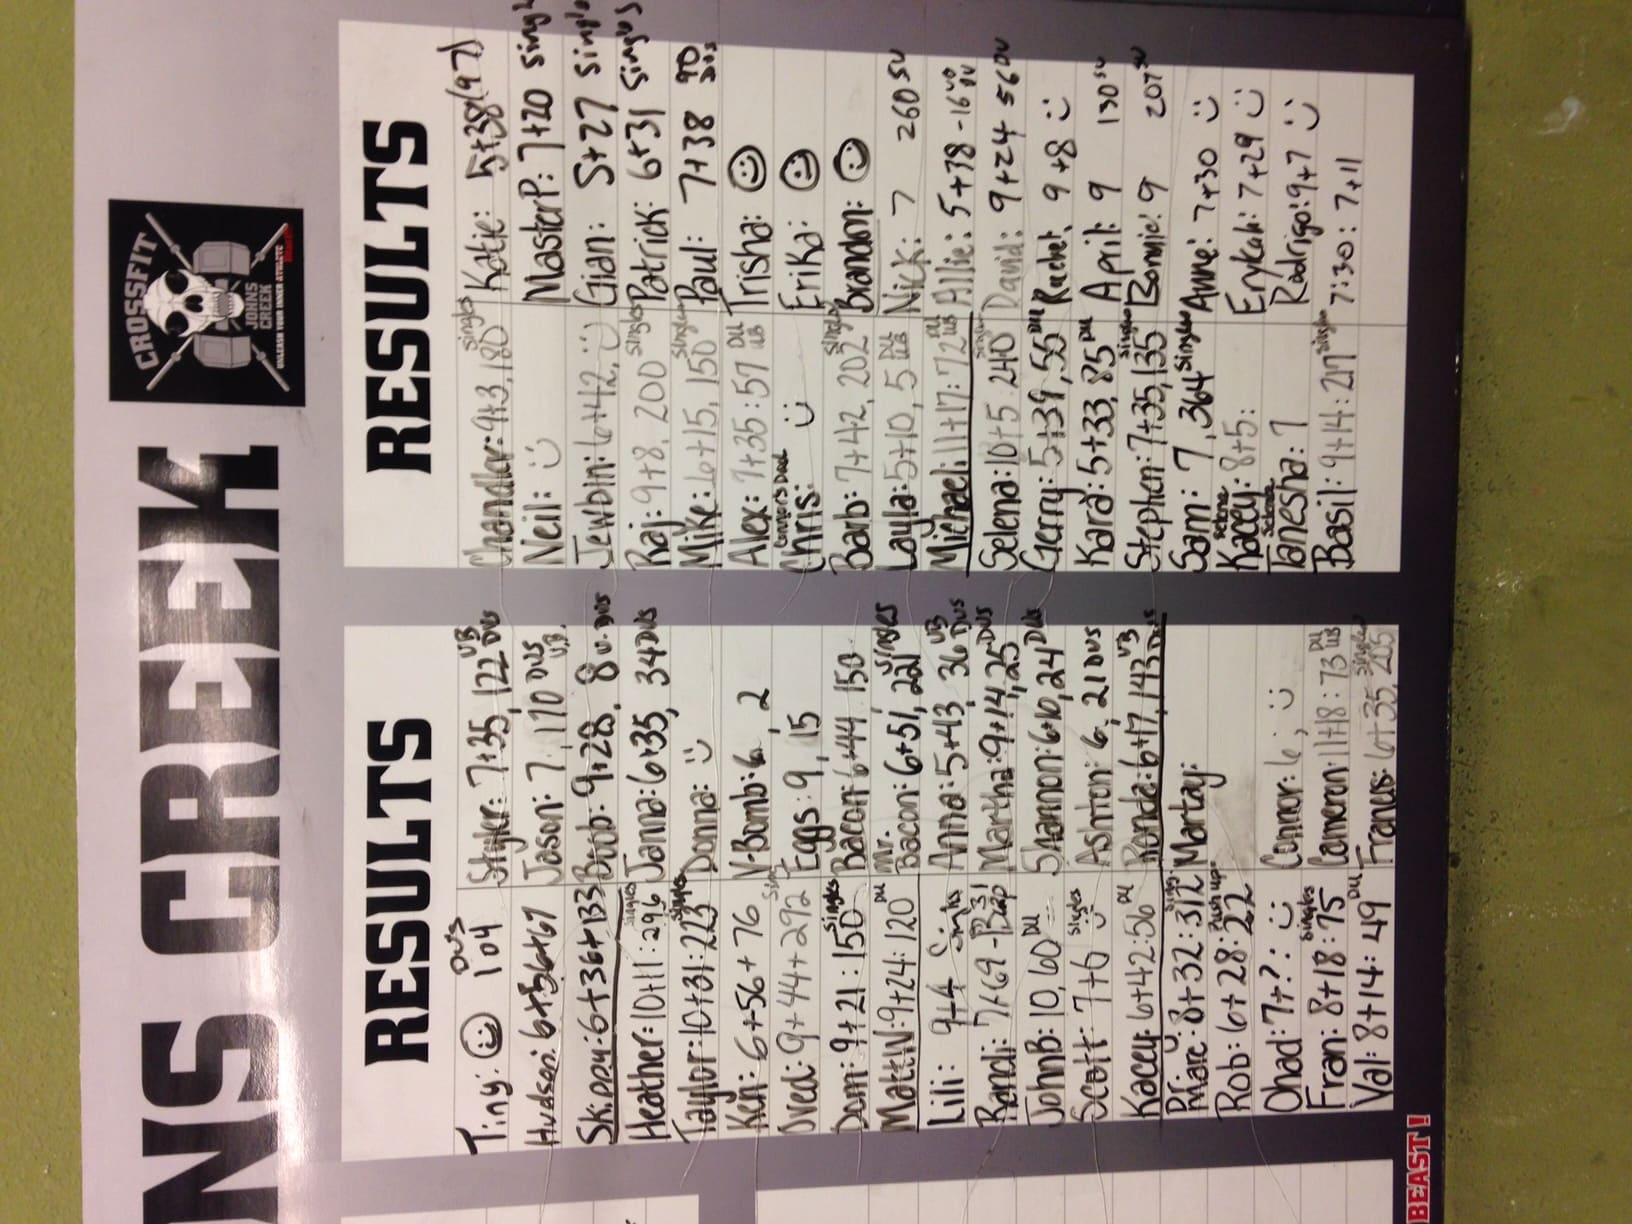 NS CREEK
CROSSFIT
JOHNS
CREEK
UNLEASH YOUR INNER ATHLETE
RESULTS
Tiny: ☺ 104 DU's
Hudson: 6+56+67
Skippy: 6+36+133
Heather: 10+11: 296 singles
Taylor: 10+31: 223 singles
Ken: 6+56+76
Dved: 9+44+292
Dom: 9+21: 150 singles
Matt W: 9+24: 120 DU
Lili: 9+4 singles
Randi: 7+69
John B: 10, 60 DU
Scott: 7+6 singles
Kacey: 6+42: 56 DU
Dr. Marc: 8+32: 312 sings.
Rob: 6+28: 22 push ups
Ohad: 7+?: :)
Fran: 8+18: 75 singles
Val: 8+14: 49 DU
Skyler: 7+35, 122 UB DUS
Jason: 7, 110 DUS U.B.
9+28, 8 U. DUS
Janna: 6+35, 34 DUS
Donna: :)
V-Bomb: 6, 2
Eggs: 9, 15
Bacon: 6+44 150
Mr. Bacon: 6+51, 221 singles
Anna: 5+43, 36 UB DUS
Martha: 9+14, 25 DUS
Shannon: 6+10, 24 DUS
Ashton: 6, 21 DUS
Ronda: 6+17, 143 UB DUS
Martay:
Connor: 6; :)
Cameron: 11+18: 73 DU UB
Francis: 6+35, 205 singles
RESULTS
Chandler: 9+3, 180 singles
Neil: :)
Jewbin: 6+42, :)
Raj: 9+8, 200 singles
Mike: 6+15, 150 singles
Alex: 7+35: 57 DU UB
Connors Dad
Chris: :)
Barb: 7+42, 202 singles
Layla: 5+10, 5 DU UB
Michael: 11+17: 72 DU UB
Selena: 10+5: 240 singles
Gerry: 5+39, 55 DU
Kara: 5+33, 85 DU
Stephen: 7+35, 135 singles
Sam: 7, 364 singles
Selena Kacey: 8+5:
Selena Tanesha: 7
Basil: 9+14: 217 singles
Katie: 5+38 (97)
Master P: 7+20 singl
Gian: 5+27 singls
Patrick: 6+31 singles
Paul: 7+38 90 DUs
Trisha: ☺
Erika: ☺
Brandon: ☺
Nick: 7 260 SU
Allie: 5+38 -16 UB DU
David: 9+24 56 DU
Rachel: 9+8 :)
April: 9 130 SU
Bonnie: 9 207 SU
Anne: 7+30 :)
Erykah: 7+29 :)
Rodrigo: 9+7 :)
7:30: 7+11
BEAST!